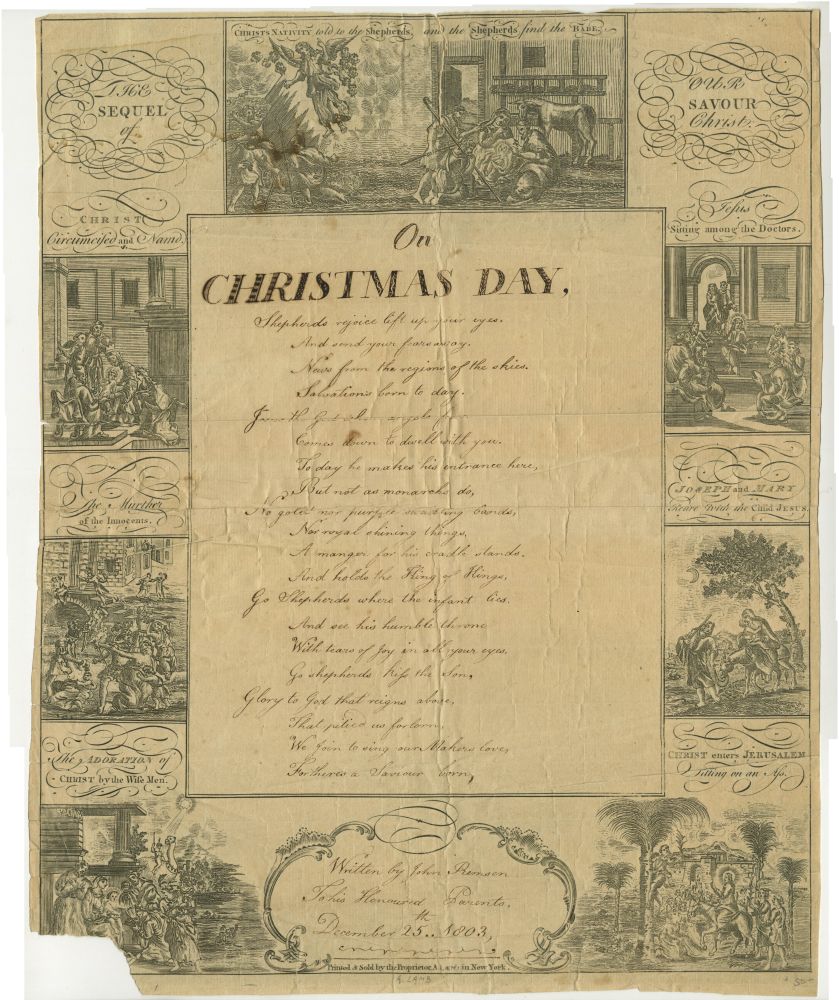 CHRISTS NATIVITY told to the Shepherds, and the Shepherds find the BABE.
THE
SEQUEL
of
OUR
SAVOUR
Christ.
CHRIST
Circumcised and Namd.
Jesus
Sitting among the Doctors.
On
CHRISTMAS DAY,
Shepherds rejoice lift up your eyes.
And send your fears away.
News from the regions of the skies.
Salvation's born to day.
Comes down to dwell with you.
To day he makes his entrance here,
But not as monarchs do,
No gold nor purple swadling bands,
Nor royal shining things,
A manger for his cradle stands.
And holds the King of Kings,
Go Shepherds where the infant lies.
And see his humble throne
With tears of joy in all your eyes,
Go shepherds kiss the Son,
Glory to God that reigns above,
That pitied us forlorn,
We join to sing our Makers love,
For theres a Saviour born,
The Murther
of the Innocents.
JOSEPH and MARY
with the Child JESUS.
The ADORATION of
CHRIST by the Wise Men.
CHRIST enters JERUSALEM
Sitting on an Ass.
Written by John Remsen
To his Honoured Parents,
December 25th.. 1803,
Printed & Sold by the Proprietor, A LAMB in New York.
A. LAMB